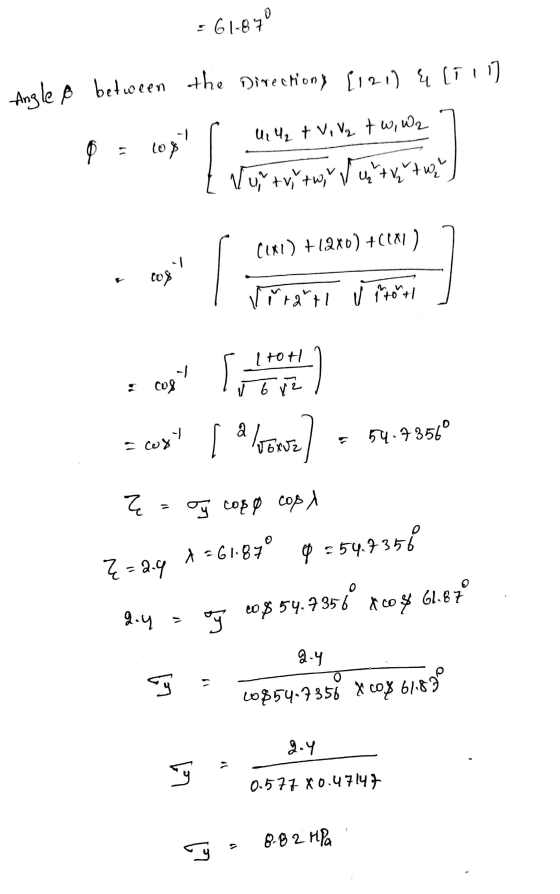 = 61.87⁰
Angle ϕ between the Directions [121) & [1̅ 1 1]
ϕ = cos⁻¹ [ (u₁u₂ + v₁v₂ + w₁w₂) / (√(u₁² + v₁² + w₁²) √(u₂² + v₂² + w₂²)) ]
= cos⁻¹ [ ((1x1) + (2x0) + (1x1)) / (√(1²+2²+1) √(1²+0²+1)) ]
= cos⁻¹ [ (1+0+1) / (√6 √2) )
= cos⁻¹ [ 2/√6x√2 ] = 54.7356⁰
τ = σy cosϕ cosλ
τ = 2.4 λ = 61.87⁰ ϕ = 54.7356⁰
2.4 = σy cos 54.7356⁰ x cos 61.87⁰
σy = 2.4 / (cos54.7356⁰ x cos 61.87⁰)
σy = 2.4 / (0.577 x 0.47147)
σy = 8.82 MPa